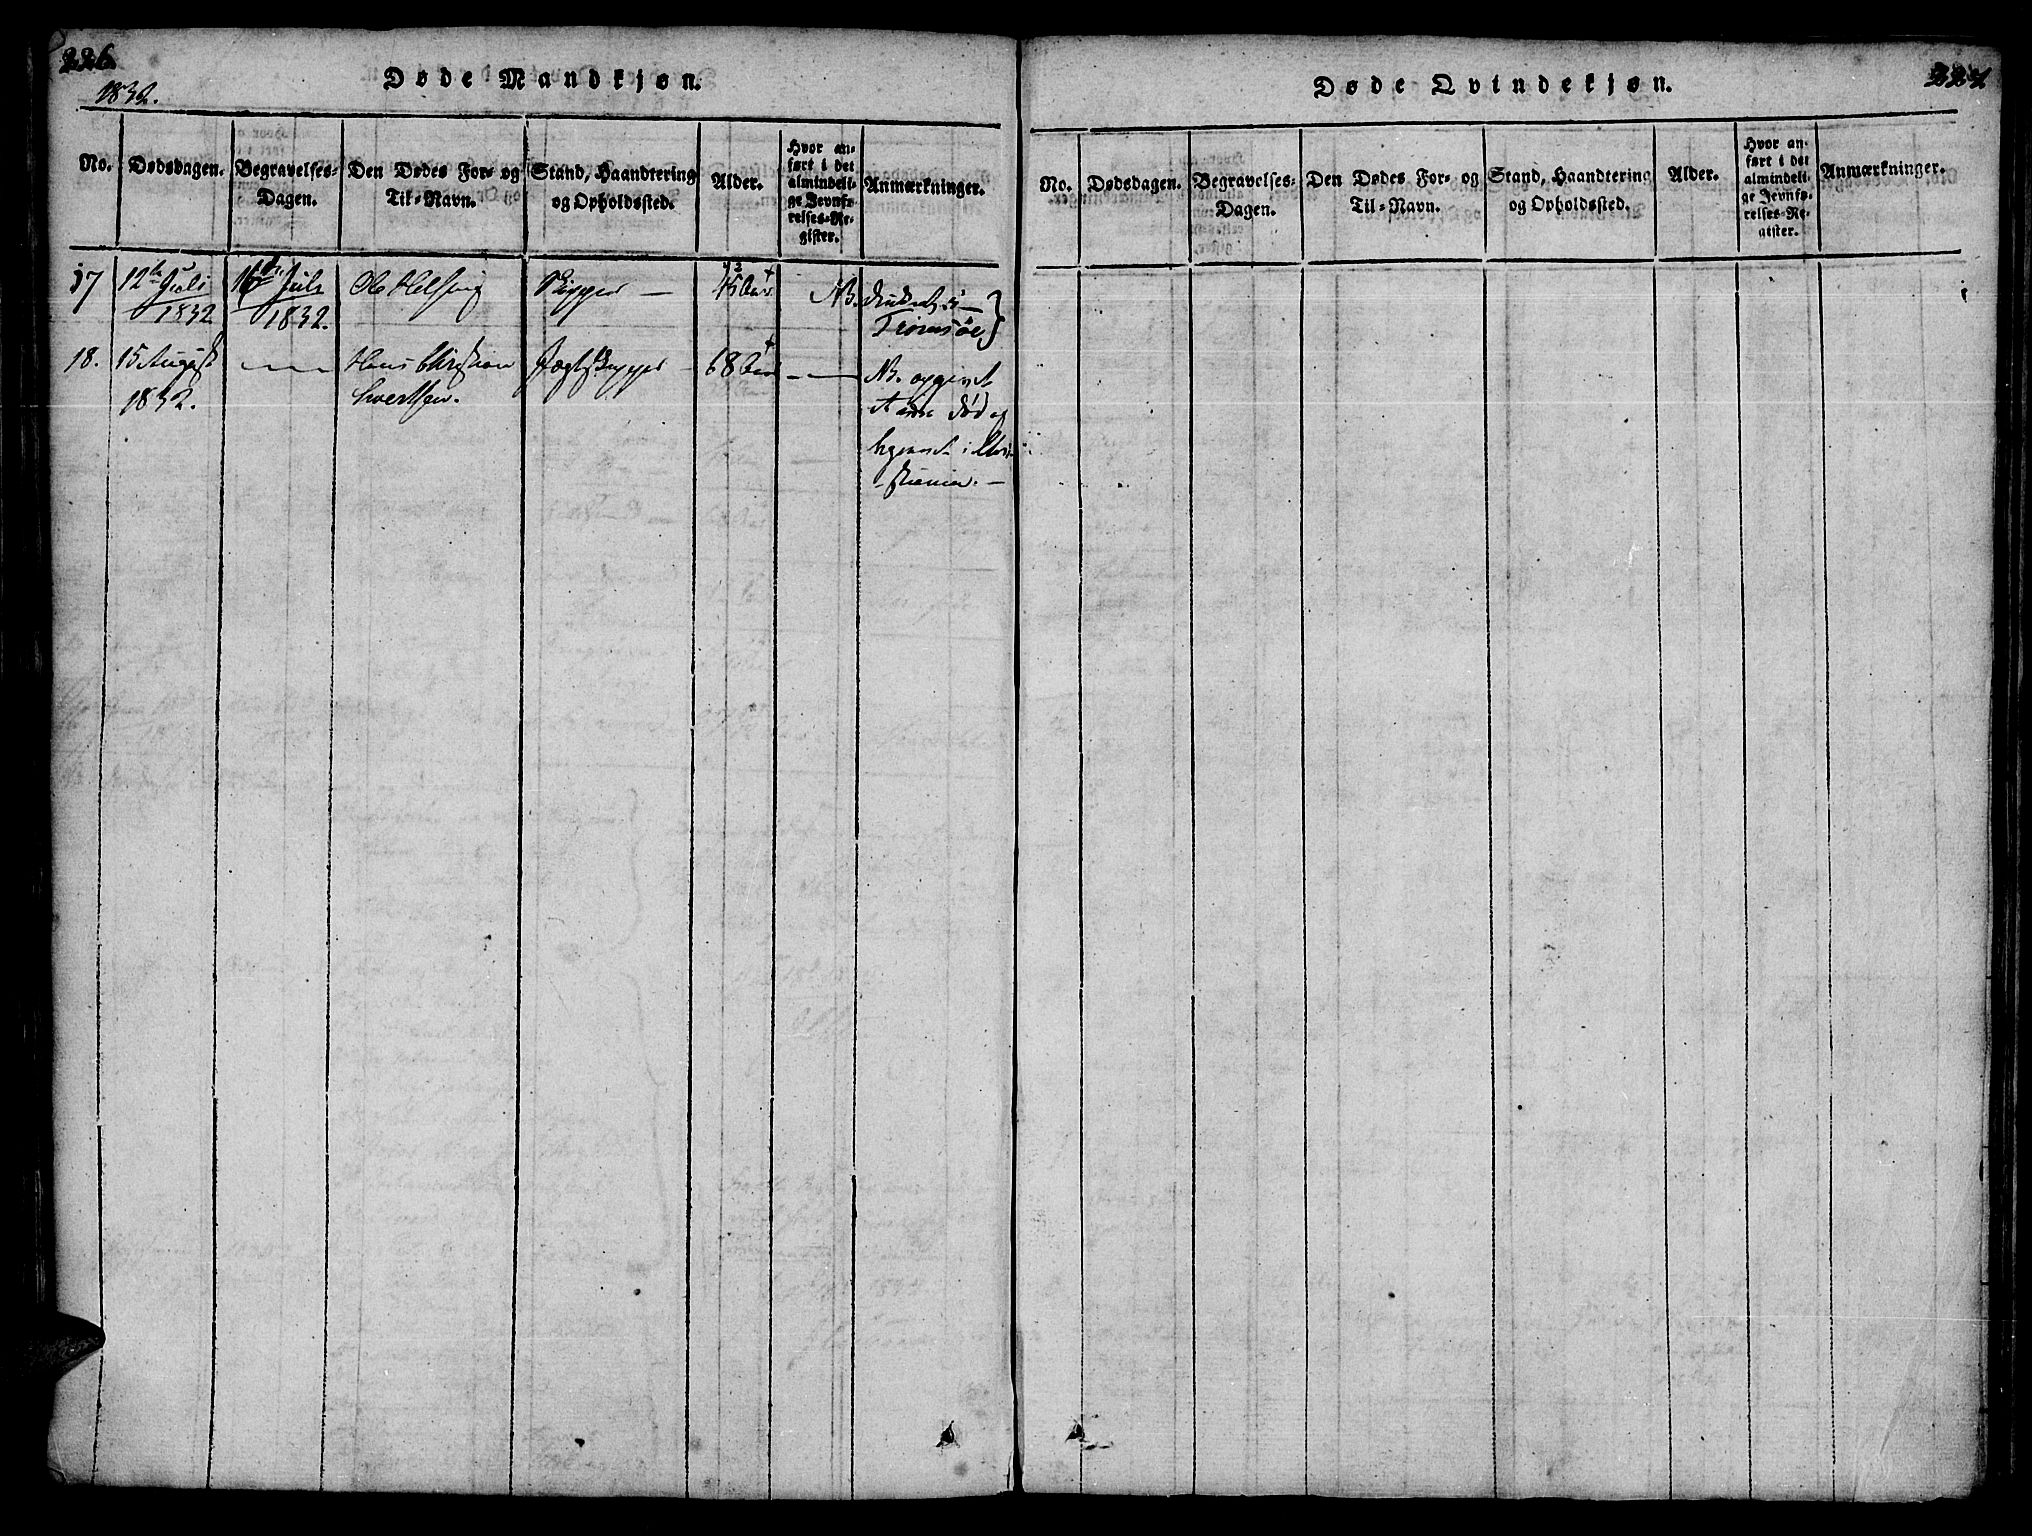 226.
1832.
Døde Mandkjøn.
No. Dødsdagen. Begravelses-Dagen. Den Dødes For- og Til-Navn. Stand, Haandtering og Opholdssted. Alder. Hvor anført i det almindelige Jevnførelses-Register. Anmærkninger.
17 12te Juli 1832 16de Juli 1832. Ole Skipper — NB. i Tromsöe
18. 15 August 1832. Hans Christian Jagtskipper 68 Aar NB. opgivet at være død og begravet i Christiania. —
227
Døde Qvindekjøn.
No. Dødsdagen. Begravelses-Dagen. Den Dødes For- og Til-Navn. Stand, Haandtering og Opholdssted. Alder. Hvor anført i det almindelige Jevnførelses-Register. Anmærkninger.